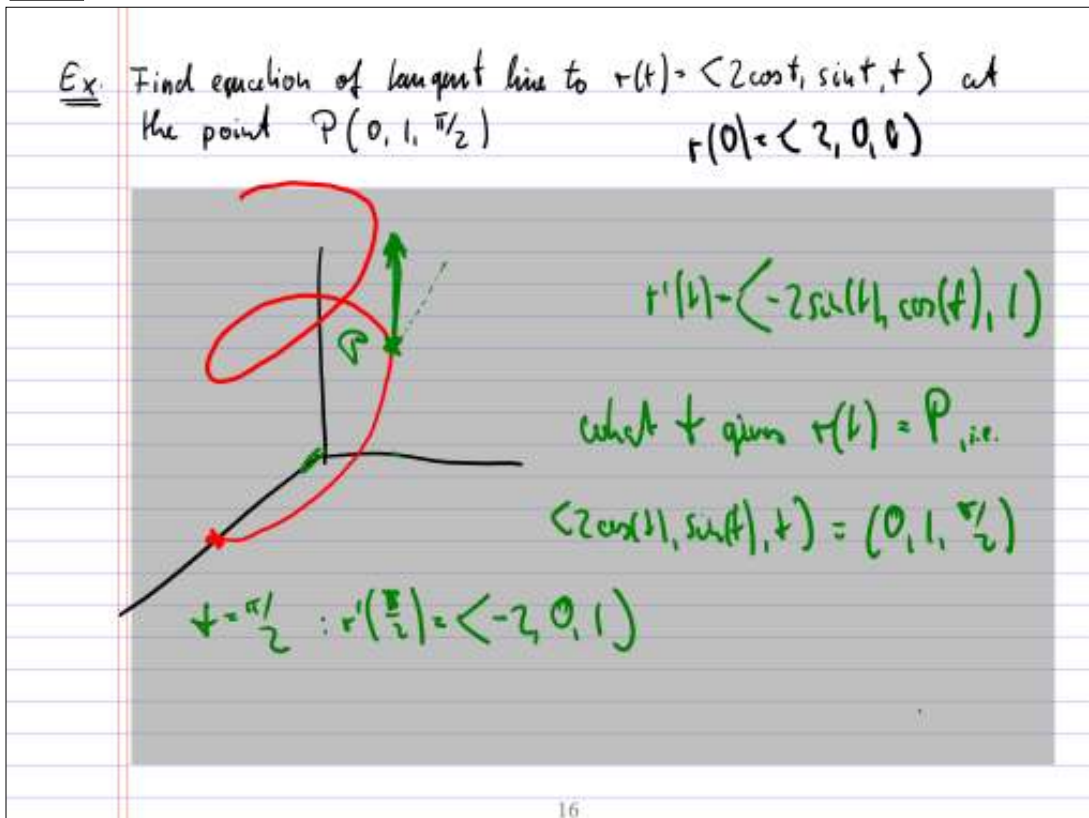 Ex. Find equation of tangent line to r(t) = <2cost, sint, t> at
the point P(0, 1, π/2)
r(0) = <2, 0, 0)
P
r'(t) = <-2sin(t), cos(t), 1)
what t gives r(t) = P, i.e.
<2cos(t), sin(t), t) = (0, 1, π/2)
t = π/2 : r'(π/2) = <-2, 0, 1)
16